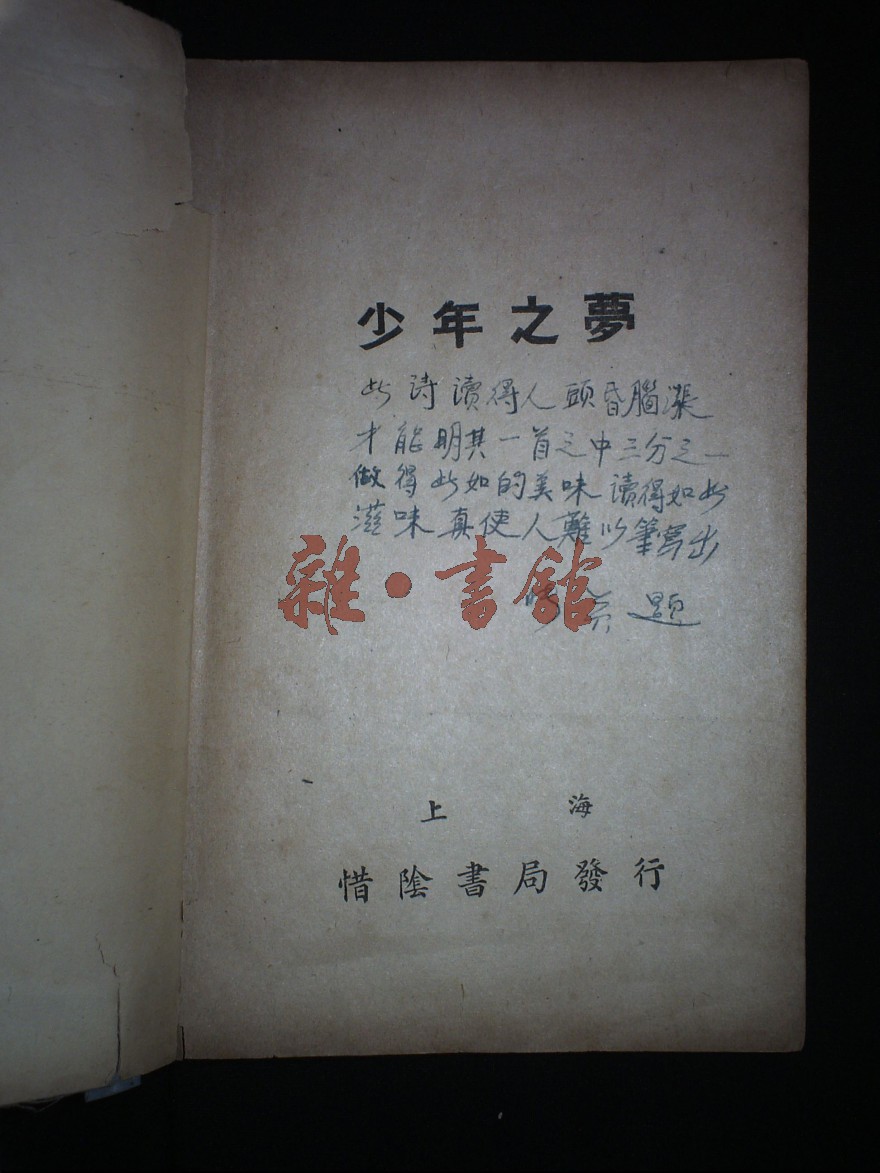 少年之夢
此詩讀得人頭昏腦漲
才能明其一首之中三分之一
做得此如的美味讀得如此
滋味真使人難以筆寫出
題
雜·書館
上海
惜陰書局發行